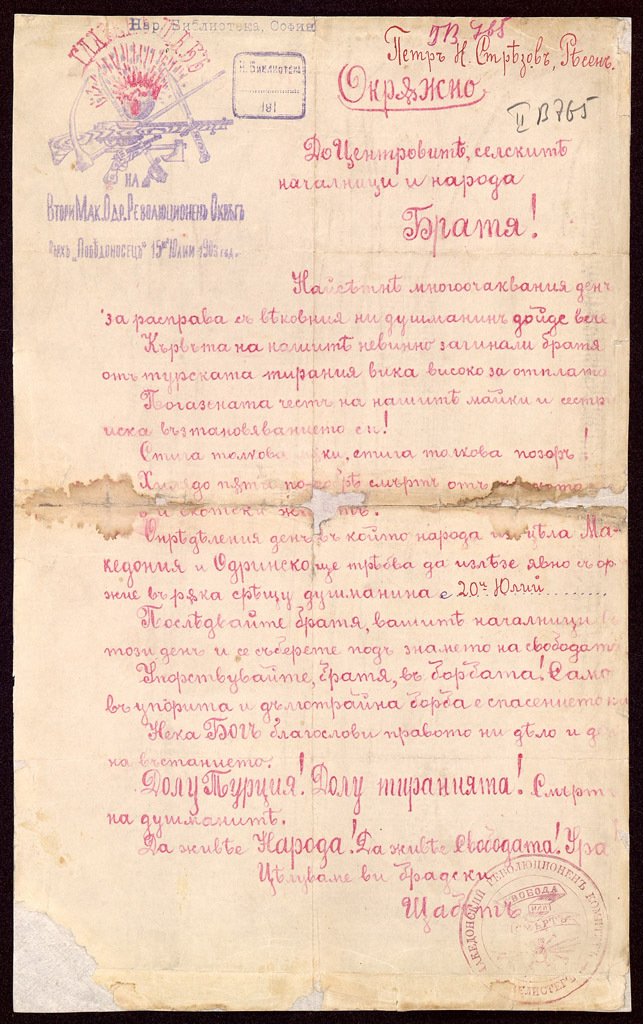 Нар. Библиотека, София
ПВ 765
Петръ Н. Стрѣзовъ, Рѣсенъ.
Окрѫжно
Н. Библиотека
191
II В 765
ГЛАВЕНЪ ЩАБЪ
НА
Втори Мак. Одр. Революционенъ Окрѫгъ
Върхъ „Побѣдоносецъ" 15ий Юлий 1903 год.
До Центровитѣ, селскитѣ
началници и народа
Братя!
Найсѣтнѣ многоочаквания денъ
за расправа съ вѣковния ни душманинъ дойде вече
Кървьта на нашитѣ невинно загинали братя
отъ турската тирания вика високо за отплата
Погазената честь на нашитѣ майки и сестри
иска възтановяванието си!
Стига толкова стига толкова позоръ!
Хиляда пѫти по-добрѣ смърть отъ
и скотски
Опрѣделения день, въ който народа цѣла Ма-
кедония и Одринско ще трѣбва да излѣзе явно съ орѫ
жие въ рѫка срѣщу душманина е 20й Юлий........
Послѣдвайте братя, вашитѣ началници
този день и се съберете подъ знамето на свободата
Упорствувайте, братя, въ борбата! Само
въ упорита и дълготрайна борба е спасението
Нека Богъ благослови правото ни дѣло и
на въстанието.
Долу Турция! Долу тиранията! Смърть
на душманитѣ.
Да живѣе Народа! Да живѣе Свободата! Ура
Цѣлуваме ви братски
Щабътъ
МАКЕДОНСКИЙ РЕВОЛЮЦИОНЕНЪ КОМИТЕТЪ
СВОБОДА
ИЛИ
СМЕРТЬ